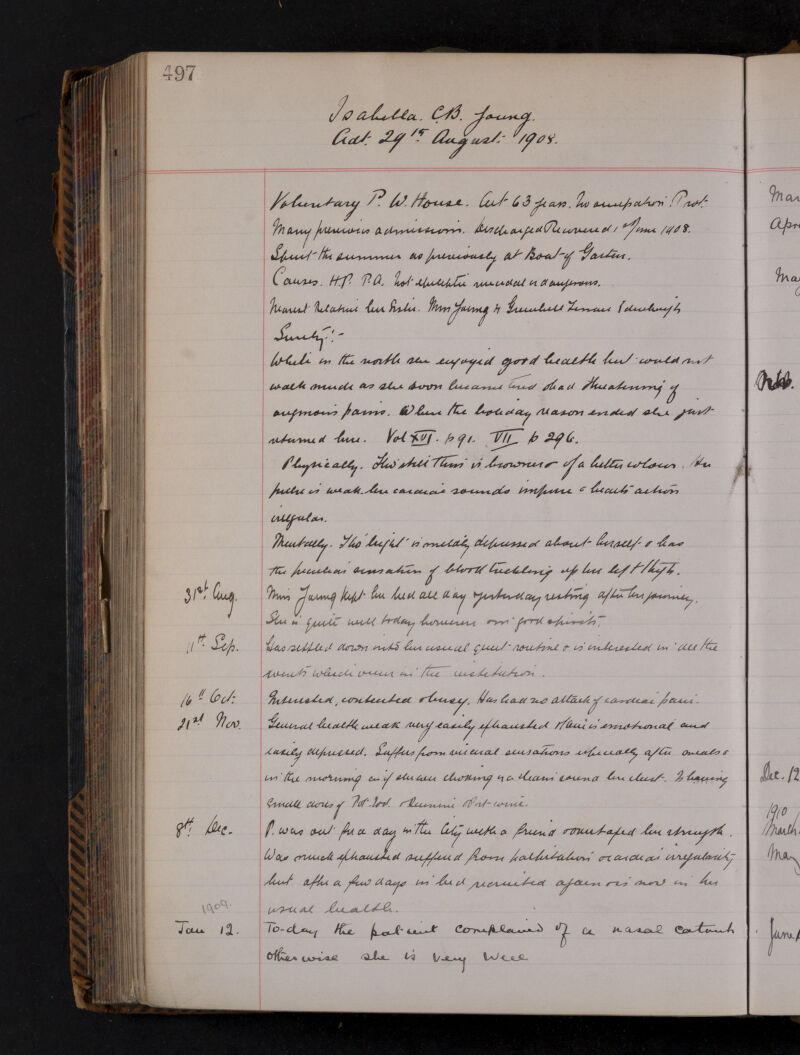 497
Isabella. C.B. Young.
Adt. 29th August. 1908.
Voluntary P. W. House. Aet 63 years. No occupation. Prot.
Many previous admissions. Discharged Recovered 1st June 1908.
Spent the summer as previously at Boat of Garten.
Causes. H.P. P.A. Not epileptic suicidal or dangerous.
Nearest Relative her Sister. Miss Young 4 Greenhill Terrace Edinburgh
While in the north she enjoyed good health but would not
walk much as she soon became tired & had threatening of
anginous pains. When the holiday season ended she just
returned here. Vol XVI. p 91. VII p 296.
Physically. Tho' still thin is browner & of a better colour. Her
pulse is weak her cardiac sounds impure & heart's action
irregular.
Mentally. Tho' bright is mildly depressed about herself & has
the peculiar sensation of blood trickling up her left thigh.
31st Aug. Miss Young kept her bed all day yesterday resting after her journey.
She is quite well today however & in good spirits.
11th Sep. Has settled down into her usual quiet routine & is interested in all the
events which occur in the institution.
16th Oct. Interested, contented & busy. Has had no attack of cardiac pain.
21st Nov. General health weak very easily exhausted & is emotional and
easily depressed. Suffers from visceral sensations especially after meals &
in the morning as if she were choking or a chain round her chest. Is having
small doses of Pot. Iod. & Port wine.
8th Dec. P. was out for a day in the City with a friend & overtaxed her strength.
Was much exhausted suffered from palpitation & cardiac irregularity
but after a few days in bed recruited again & is now in her
usual health.
1909.
Jan 12. To-day the patient complained of a nasal catarrh
otherwise she is very well
Mar
Apr
Ma
Dec. 12
1910
March
May
June